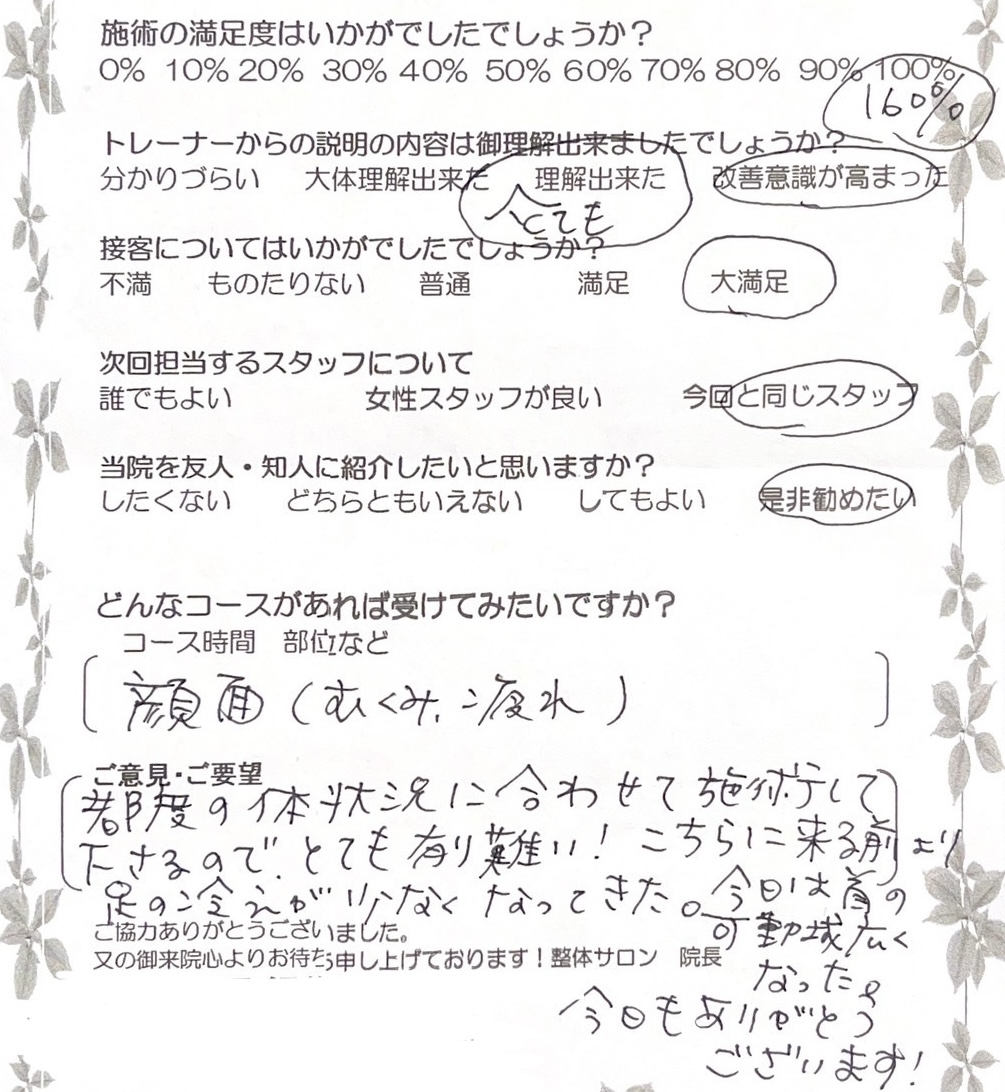 施術の満足度はいかがでしたでしょうか？
0% 10% 20% 30% 40% 50% 60% 70% 80% 90% 100%
160%
トレーナーからの説明の内容は御理解出来ましたでしょうか？
分かりづらい 大体理解出来た 理解出来た 改善意識が高まった
とても
接客についてはいかがでしたでしょうか？
不満 ものたりない 普通 満足 大満足
次回担当するスタッフについて
誰でもよい 女性スタッフが良い 今回と同じスタッフ
当院を友人・知人に紹介したいと思いますか？
したくない どちらともいえない してもよい 是非勧めたい
どんなコースがあれば受けてみたいですか？
コース時間 部位など
顔面（むくみ、疲れ）
ご意見・ご要望
都度の体状況に合わせて施術して
下さるので、とても有り難い！こちらに来る前より
足の冷えが少なくなってきた。今日は首の
可動域広く
なった。
ご協力ありがとうございました。
又の御来院心よりお待ち申し上げております！整体サロン 院長
今日もありがとう
ございます！